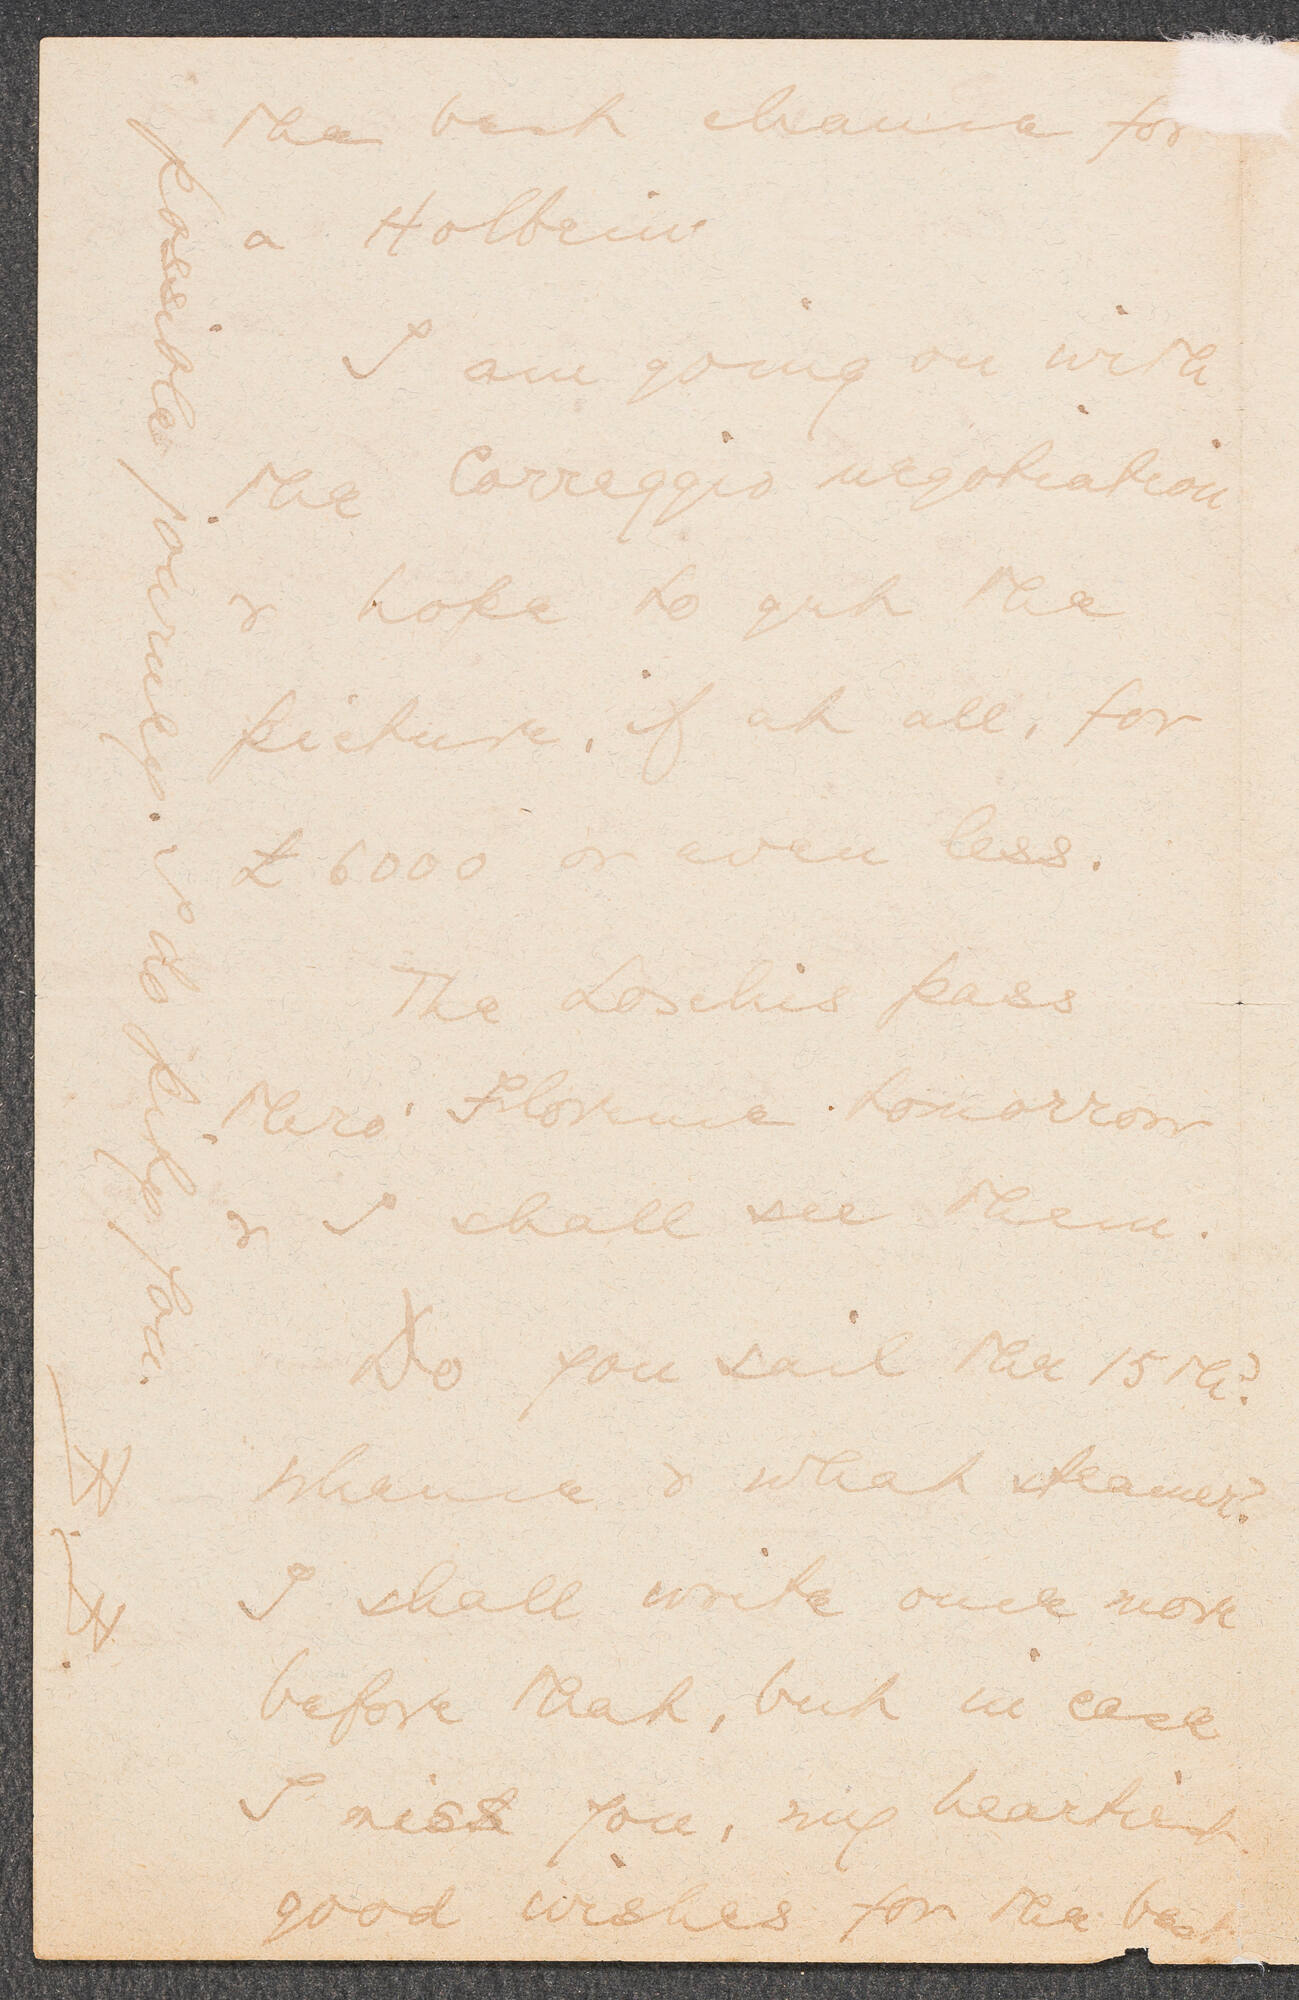 the best chance for
a Holbein
I am going on with
the Correggio negotiation
& hope to get the
picture, if at all, for
£6000 or even less.
The Loschis pass
thro' Florence tomorrow
& I shall see them.
Do you sail the 15th?
Whence & what steamer?
I shall write once more
before that, but in case
I miss you, my heartiest
good wishes for the best
possible journey. I do pity you.